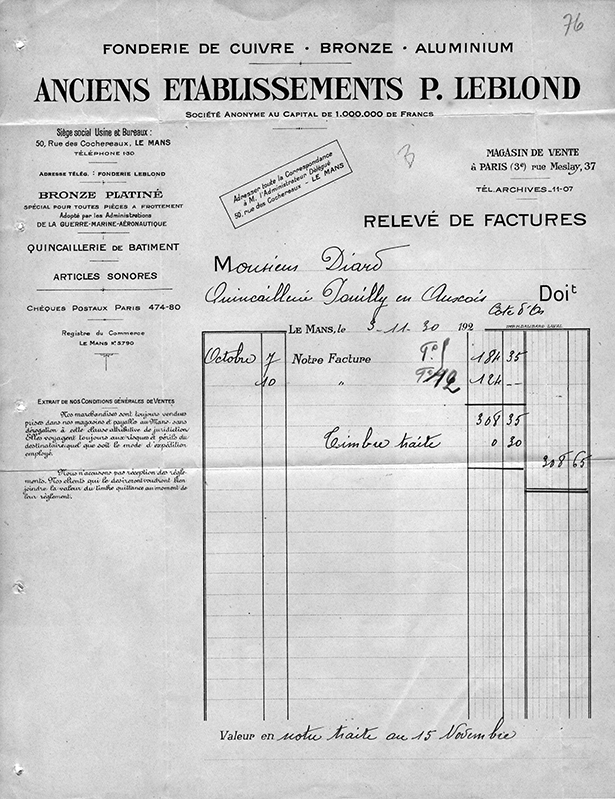 76
FONDERIE DE CUIVRE · BRONZE · ALUMINIUM
ANCIENS ETABLISSEMENTS P. LEBLOND
SOCIÉTÉ ANONYME AU CAPITAL DE 1.000.000 DE FRANCS
Siège social Usine et Bureaux :
50, Rue des Cochereaux, LE MANS
TÉLÉPHONE 1-30
ADRESSE TÉLÉG : FONDERIE LEBLOND
BRONZE PLATINÉ
SPÉCIAL POUR TOUTES PIÈCES A FROTTEMENT
Adopté par les Administrations
DE LA GUERRE-MARINE-AÉRONAUTIQUE
QUINCAILLERIE DE BATIMENT
ARTICLES SONORES
CHÈQUES POSTAUX PARIS 474-80
Registre du Commerce
LE MANS N° 3790
Adresser toute la Correspondance
à M. l'Administrateur Délégué
50, rue des Cochereaux - LE MANS
MAGASIN DE VENTE
à PARIS (3e) rue Meslay, 37
TÉL. ARCHIVES_11-07
RELEVÉ DE FACTURES
Monsieur Diard
Quincaillerie Pouilly en Auxois
Côte d'Or
Doit
LE MANS, le 3-11-30 192
Octobre 7 Notre Facture 184 35
10 " 124 --
308 35
Timbre traite 0 30
308 65
EXTRAIT DE NOS CONDITIONS GÉNÉRALES DE VENTES
Nos marchandises sont toujours vendues
prises dans nos magasins et payables au Mans, sans
dérogation à cette clause attributive de juridiction
Elles voyagent toujours aux risques et périls du
destinataire quel que soit le mode d'expédition
employé.
Nous n'accusons pas réception des règle-
ments. Nos clients qui le désirent voudront bien
joindre la valeur du timbre quittance au moment de
leur règlement.
Valeur en notre traite au 15 Novembre